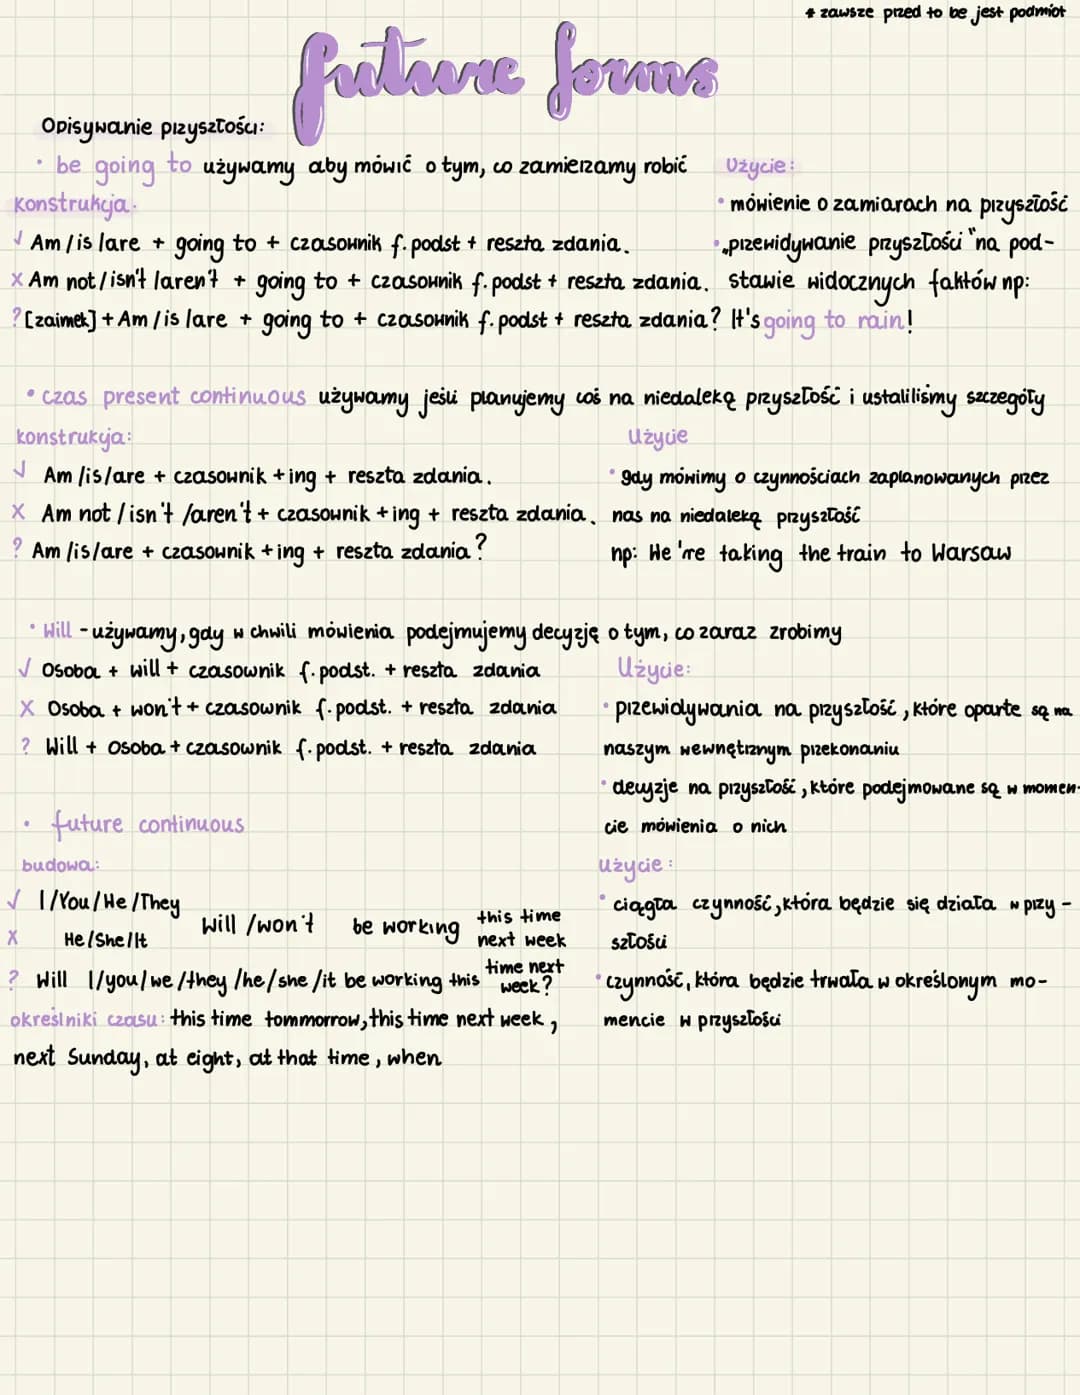 * zawsze przed to be jest podmiot
future forms
Opisywanie przyszłości:
• be going to używamy aby mówić o tym, co zamierzamy robić
Użycie:
konstrukcja.
• mówienie o zamiarach na przyszłość
√ Am / is /are + going to + czasownik f. podst + reszta zdania.
• „przewidywanie przyszłości" na pod-
X Am not / isn't /aren't + going to + czasownik f. podst + reszta zdania.
stawie widocznych faktów np:
? [zaimek] + Am / is /are + going to + czasownik f. podst + reszta zdania?
It's going to rain!
• czas present continuous używamy jeśli planujemy coś na niedaleką przyszłość i ustaliliśmy szczegóły
konstrukcja:
Użycie
√ Am /is/are + czasownik +ing + reszta zdania.
• gdy mówimy o czynnościach zaplanowanych przez
X Am not / isn't /aren't + czasownik +ing + reszta zdania.
nas na niedaleką przyszłość
? Am /is/are + czasownik +ing + reszta zdania?
np: We're taking the train to Warsaw
• Will - używamy, gdy w chwili mówienia podejmujemy decyzję o tym, co zaraz zrobimy
√ Osoba + will + czasownik f. podst. + reszta zdania
Użycie:
X Osoba + won't + czasownik f. podst. + reszta zdania
• przewidywania na przyszłość, które oparte są na
? Will + osoba + czasownik f. podst. + reszta zdania
naszym wewnętrznym przekonaniu
• decyzje na przyszłość, które podejmowane są w momen-
cie mówienia o nich
• future continuous
budowa:
użycie:
√ I /You / We /They
• ciągła czynność, która będzie się działa w przy-
X He/She/It
Will /won't be working this time next week
szłości
? Will I/you/we/they /he/she /it be working this time next week?
• czynność, która będzie trwała w określonym mo-
mencie w przyszłości
określniki czasu: this time tommorrow, this time next week,
next Sunday, at eight, at that time, when